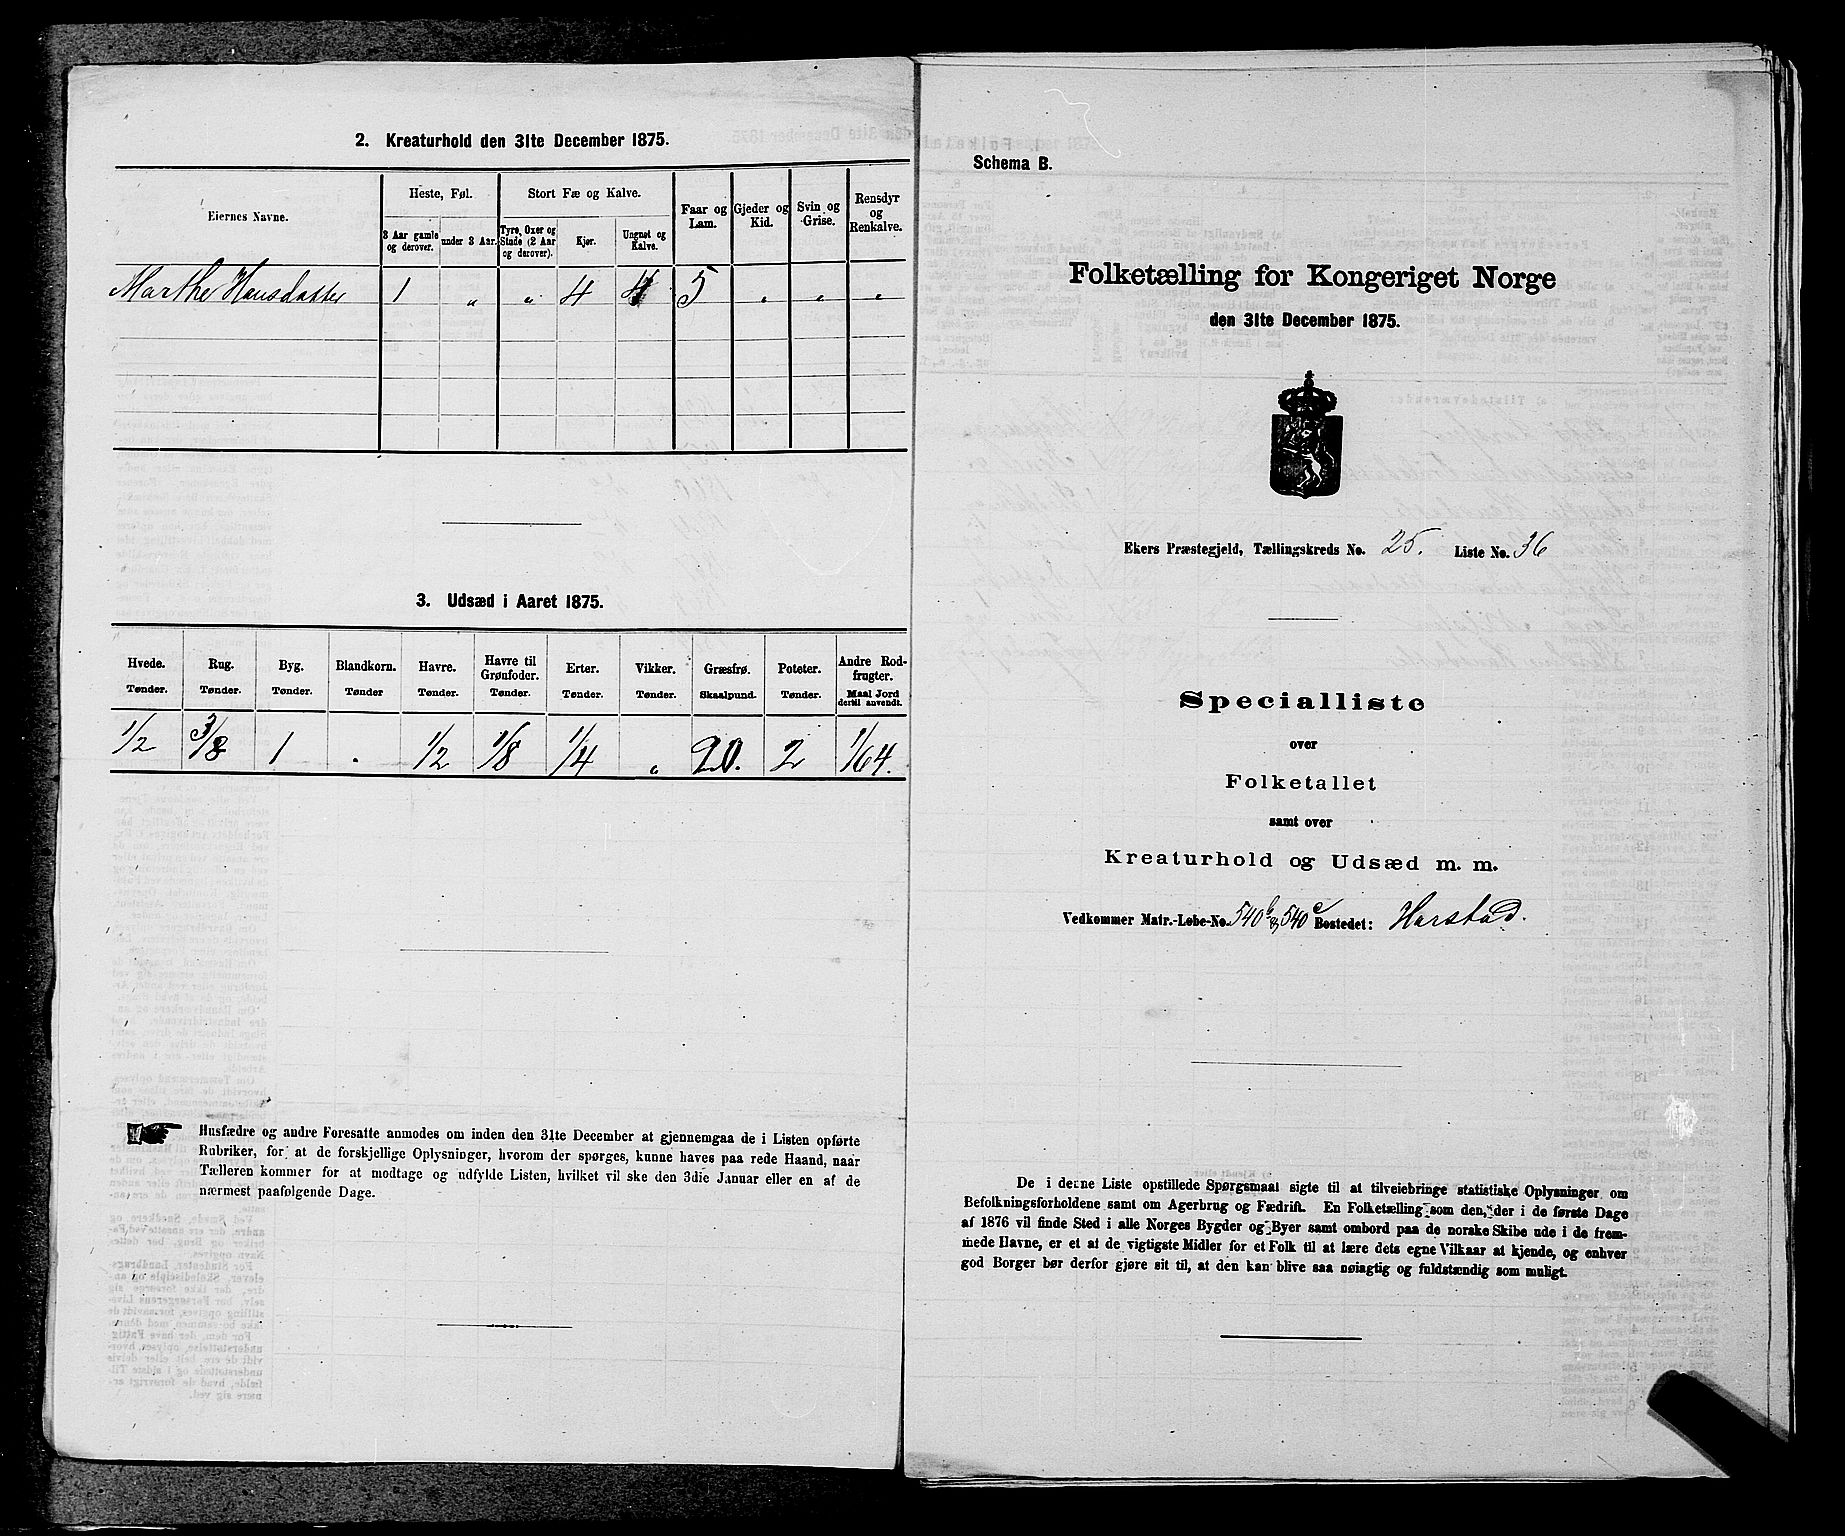 2. Kreaturhold den 31te December 1875.
Eiernes Navne.
Heste, Føl.
3 Aar gamle og derover.
under 3 Aar.
Stort Fæ og Kalve.
Tyre, Oxer og Stude (2 Aar og derover).
Kjør.
Ungnøt og Kalve.
Faar og Lam.
Gjeder og Kid.
Svin og Grise.
Rensdyr og Renkalve.
Marthe Hansdatter 1 " " 4 4 5 " " "
3. Udsæd i Aaret 1875.
Hvede. Rug. Byg. Blandkorn. Havre. Havre til Grønfoder. Erter. Vikker. Græsfrø. Poteter. Andre Rodfrugter.
Tønder. Tønder. Tønder. Tønder Tønder. Tønder. Tønder. Tønder. Skaalpund. Tønder. Maal Jord dertil anvendt.
1/2 3/8 1 " 1/2 1/8 1/4 " 20. 2 1/64.
Husfædre og andre Foresatte anmodes om inden den 31te December at gjennemgaa de i Listen opførte
Rubriker, for at de forskjellige Oplysninger, hvorom der spørges, kunne haves paa rede Haand, naar
Tælleren kommer for at modtage og udfylde Listen, hvilket vil ske den 3die Januar eller en af de
nærmest paafølgende Dage.
Schema B.
Folketælling for Kongeriget Norge
den 31te December 1875.
Ekers Præstegjeld, Tællingskreds No. 25. Liste No. 36
Specialliste
over
Folketallet
samt over
Kreaturhold og Udsæd m. m.
Vedkommer Matr.-Løbe-No. 540 b & 540 c Bostedet: Harstad.
De i denne Liste opstillede Spørgsmaal sigte til at tilveiebringe statistiske Oplysninger om
Befolkningsforholdene samt om Agerbrug og Fædrift. En Folketælling som den, der i de første Dage
af 1876 vil finde Sted i alle Norges Bygder og Byer samt ombord paa de norske Skibe ude i de frem-
mede Havne, er et af de vigtigste Midler for et Folk til at lære dets egne Vilkaar at kjende, og enhver
god Borger bør derfor gjøre sit til, at den kan blive saa nøiagtig og fuldstændig som muligt.